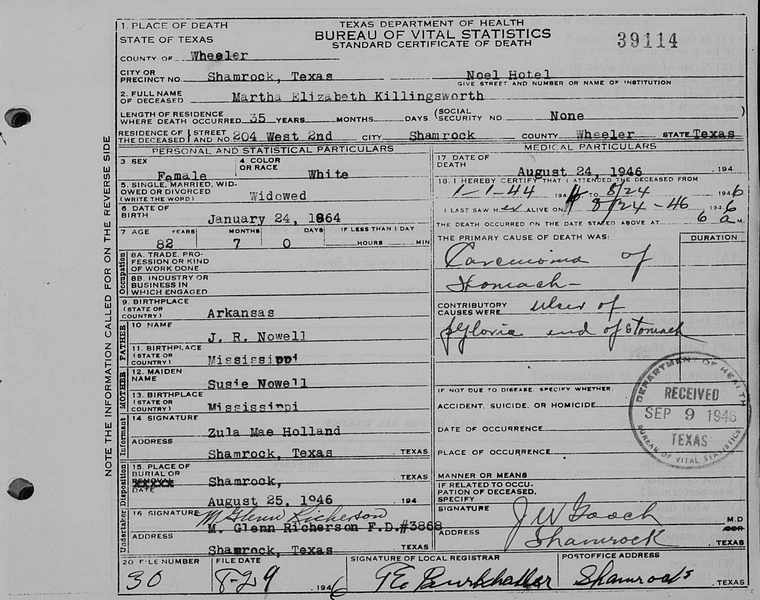 TEXAS DEPARTMENT OF HEALTH
BUREAU OF VITAL STATISTICS
STANDARD CERTIFICATE OF DEATH
39114
1. PLACE OF DEATH
STATE OF TEXAS
COUNTY OF Wheeler
CITY OR PRECINCT NO. Shamrock, Texas Noel Hotel
GIVE STREET AND NUMBER OR NAME OF INSTITUTION
2. FULL NAME OF DECEASED Martha Elizabeth Killingsworth
LENGTH OF RESIDENCE WHERE DEATH OCCURRED 35 YEARS MONTHS DAYS (SOCIAL SECURITY NO None
RESIDENCE OF THE DECEASED STREET AND NO 204 West 2nd CITY Shamrock COUNTY Wheeler STATE Texas
PERSONAL AND STATISTICAL PARTICULARS
3 SEX Female
4 COLOR OR RACE White
5. SINGLE, MARRIED, WIDOWED OR DIVORCED (WRITE THE WORD) Widowed
6 DATE OF BIRTH January 24, 1864
7 AGE YEARS MONTHS DAYS IF LESS THAN 1 DAY
82 7 0 HOURS MIN
8A. TRADE, PROFESSION OR KIND OF WORK DONE
8B. INDUSTRY OR BUSINESS IN WHICH ENGAGED
Occupation
9. BIRTHPLACE (STATE OR COUNTRY) Arkansas
FATHER
10 NAME J. R. Nowell
11. BIRTHPLACE (STATE OR COUNTRY) Mississippi
MOTHER
12. MAIDEN NAME Susie Nowell
13. BIRTHPLACE (STATE OR COUNTRY) Mississippi
Informant
14 SIGNATURE Zula Mae Holland
ADDRESS Shamrock, Texas TEXAS
Disposition
15. PLACE OF BURIAL OR Shamrock, TEXAS
DATE August 25, 1946 194
Undertaker
16 SIGNATURE M Glenn Richerson
M. Glenn Richerson F.D.#3868
ADDRESS Shamrock, Texas TEXAS
NOTE THE INFORMATION CALLED FOR ON THE REVERSE SIDE
MEDICAL PARTICULARS
17 DATE OF DEATH August 24, 1946 194
18. I HEREBY CERTIFY THAT I ATTENDED THE DECEASED FROM
1-1-44 194 TO 8/24 1946
I LAST SAW H er ALIVE ON 8/24-46 1946
THE DEATH OCCURRED ON THE DATE STATED ABOVE AT 6 a M.
THE PRIMARY CAUSE OF DEATH WAS: DURATION
Carcinoma of
Stomach -
CONTRIBUTORY CAUSES WERE ulcer of
end of Stomach
IF NOT DUE TO DISEASE, SPECIFY WHETHER
ACCIDENT, SUICIDE, OR HOMICIDE
DATE OF OCCURRENCE
PLACE OF OCCURRENCE
MANNER OR MEANS
IF RELATED TO OCCUPATION OF DECEASED, SPECIFY
SIGNATURE J W Gooch M.D
ADDRESS Shamrock TEXAS
DEPARTMENT OF HEALTH
RECEIVED
SEP 9 1946
TEXAS
BUREAU OF VITAL STATISTICS
20 FILE NUMBER FILE DATE SIGNATURE OF LOCAL REGISTRAR POSTOFFICE ADDRESS
30 8-29 1946 Shamrock TEXAS